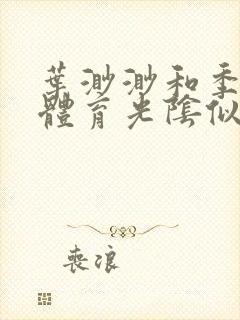 葉渺渺和季
體育光陰似
喪浪